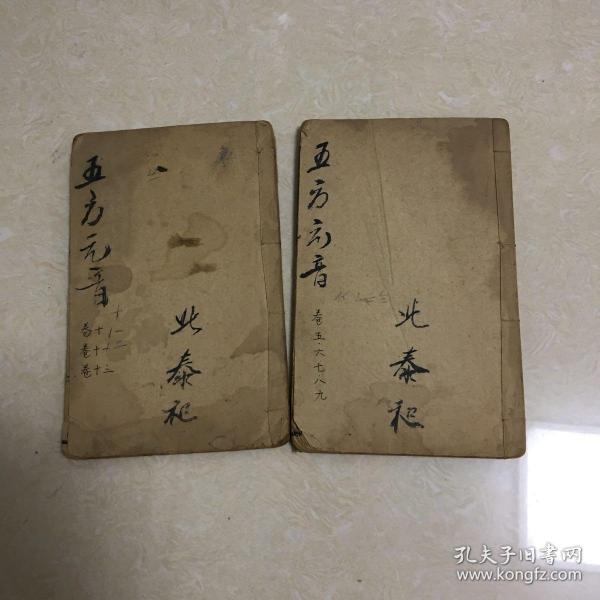 五方元音
卷十
卷十
卷十三
北泰祀
五方元音
卷五·六七八九
北泰祀
孔夫子旧书网
www.kongfz.com